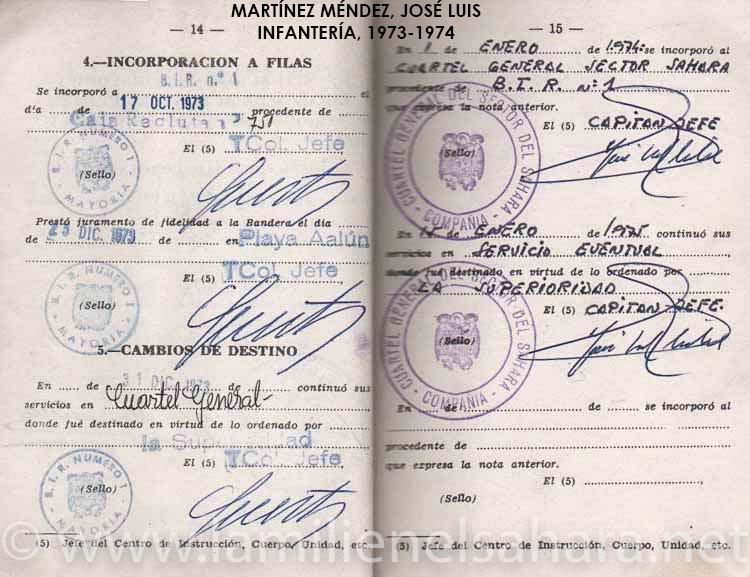 MARTÍNEZ MÉNDEZ, JOSÉ LUIS
INFANTERÍA, 1973-1974
— 14 —
4.—INCORPORACION A FILAS
B.I.R. nº 1
Se incorporó a el
día de 17 OCT. 1973 procedente de
Caja Recluta nº 751
El (5) TCol. Jefe
B. I. R. NUMERO 1
MAYORIA
(Sello)
Prestó juramento de fidelidad a la Bandera el día
de 23 DIC. 1973 de en Playa Aalún
El (5) TCol. Jefe
B. I. R. NUMERO 1
MAYORIA
(Sello)
5.—CAMBIOS DE DESTINO
En de 31 DIC. 1973 de continuó sus
servicios en Cuartel General
donde fué destinado en virtud de lo ordenado por
la Superioridad
El (5) TCol. Jefe
B. I. R. NUMERO 1
MAYORIA
(Sello)
(5) Jefe del Centro de Instrucción, Cuerpo, Unidad, etc.
— 15 —
En 1 de ENERO de 1974 se incorporó al
CUARTEL GENERAL SECTOR SAHARA
procedente de B.I.R. nº 1
que expresa la nota anterior.
El (5) CAPITAN JEFE
CUARTEL GENERAL DEL SECTOR DEL SAHARA
COMPAÑIA
(Sello)
En de ENERO de 1975 continuó sus
servicios en SERVICIO EVENTUAL
donde fué destinado en virtud de lo ordenado por
LA SUPERIORIDAD
El (5) CAPITAN JEFE.
CUARTEL GENERAL DEL SECTOR DEL SAHARA
COMPAÑIA
(Sello)
En de de se incorporó al
procedente de
que expresa la nota anterior.
El (5)
(Sello)
(5) Jefe del Centro de Instrucción, Cuerpo, Unidad, etc.
© www.lamilienelsahara.net